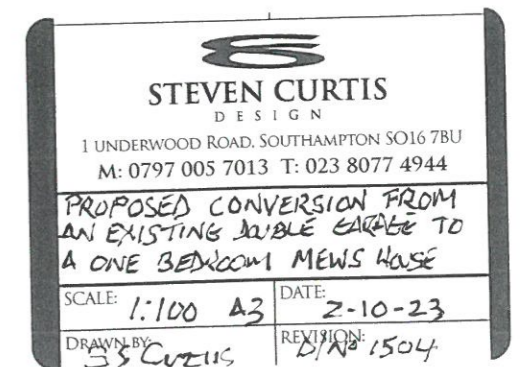 STEVEN CURTIS
DESIGN
1 UNDERWOOD ROAD, SOUTHAMPTON SO16 7BU
M: 0797 005 7013 T: 023 8077 4944
PROPOSED CONVERSION FROM
AN EXISTING DOUBLE GARAGE TO
A ONE BEDROOM MEWS HOUSE
SCALE: 1:100 A3 DATE: 2-10-23
DRAWN BY: S S CURTIS REVISION: D/No 1504